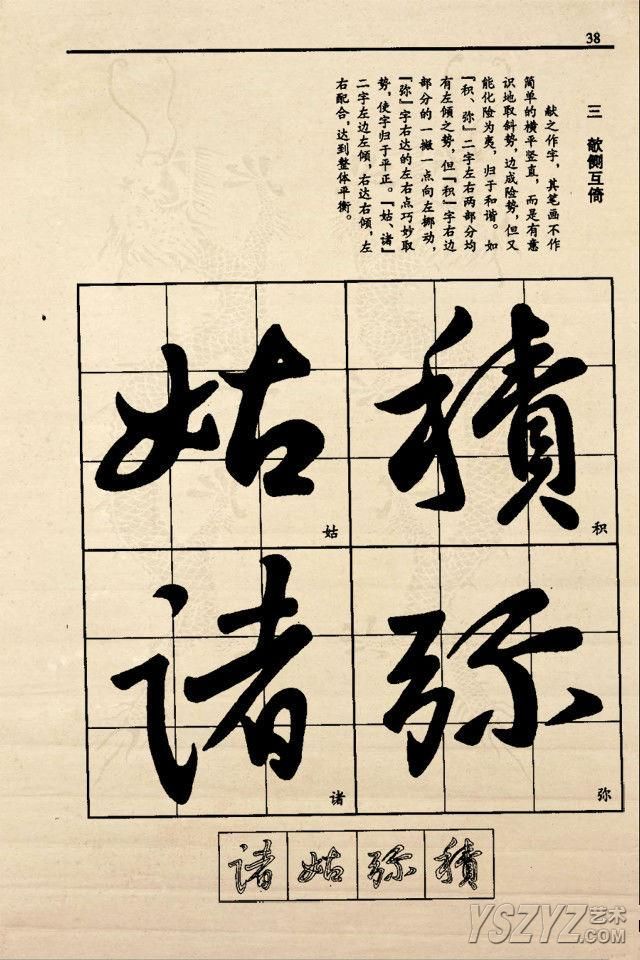 38
三 欹侧互倚
献之作字，其笔画不作
简单的横平竖直，而是有意
识地取斜势，边成险势，但又
能化险为夷，归于和谐。如
『积、弥』二字左右两部分均
有左倾之势，但『积』字右边
部分的一撇一点向左挪动，
『弥』字右达的左右点巧妙取
势，使字归于平正。『姑、诸』
二字左边左倾，右达右倾，左
右配合，达到整体平衡。
積
积
弥
弥
姑
姑
諸
诸
積
弥
姑
諸
YSZYZ艺术
.COM